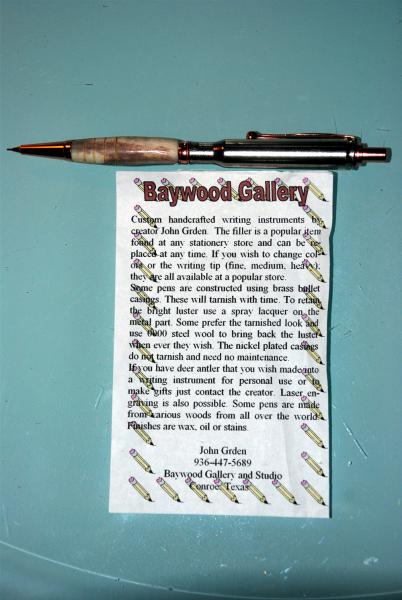 Baywood Gallery
Custom handcrafted writing instruments by
creator John Grden. The filler is a popular item
found at any stationery store and can be re-
placed at any time. If you wish to change col-
ors or the writing tip (fine, medium, heavy);
they are all available at a popular store.
Some pens are constructed using brass bullet
casings. These will tarnish with time. To retain
the bright luster use a spray lacquer on the
metal part. Some prefer the tarnished look and
use 0000 steel wool to bring back the luster
when ever they wish. The nickel plated casings
do not tarnish and need no maintenance.
If you have deer antler that you wish made into
a writing instrument for personal use or to
make gifts just contact the creator. Laser en-
graving is also possible. Some pens are made
from various woods from all over the world.
Finishes are wax, oil or stains.
John Grden
936-447-5689
Baywood Gallery and Studio
Conroe, Texas